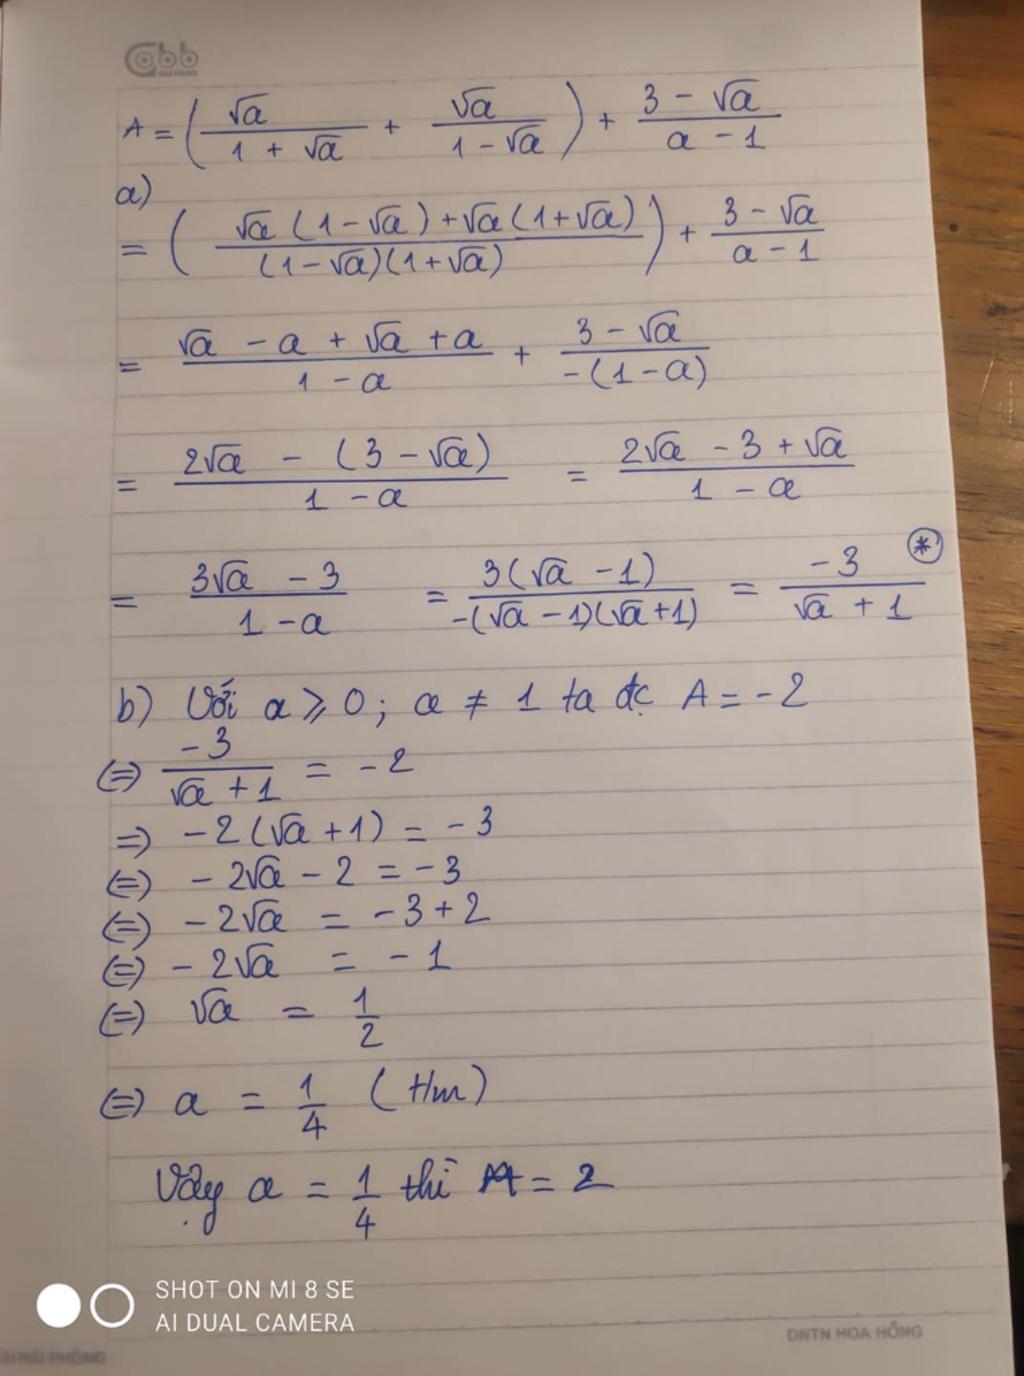 abb
HẢI HÀNG
A = ( √a / (1 + √a) + √a / (1 - √a) ) + (3 - √a) / (a - 1)
a)
= ( (√a (1 - √a) + √a (1 + √a)) / ((1 - √a)(1 + √a)) ) + (3 - √a) / (a - 1)
= (√a - a + √a + a) / (1 - a) + (3 - √a) / (-(1 - a))
= (2√a - (3 - √a)) / (1 - a) = (2√a - 3 + √a) / (1 - a)
= (3√a - 3) / (1 - a) = 3(√a - 1) / (-(√a - 1)(√a + 1)) = -3 / (√a + 1) (*)
b) Với a ⩾ 0 ; a ≠ 1 ta đc A = -2
(=) -3 / (√a + 1) = -2
=) -2 (√a + 1) = -3
(=) - 2√a - 2 = -3
(=) - 2√a = -3 + 2
(=) - 2√a = - 1
(=) √a = 1/2
(=) a = 1/4 (tm)
Vậy a = 1/4 thì A = 2
SHOT ON MI 8 SE
AI DUAL CAMERA
DNTN HOA HỒNG
HẢI PHÒNG